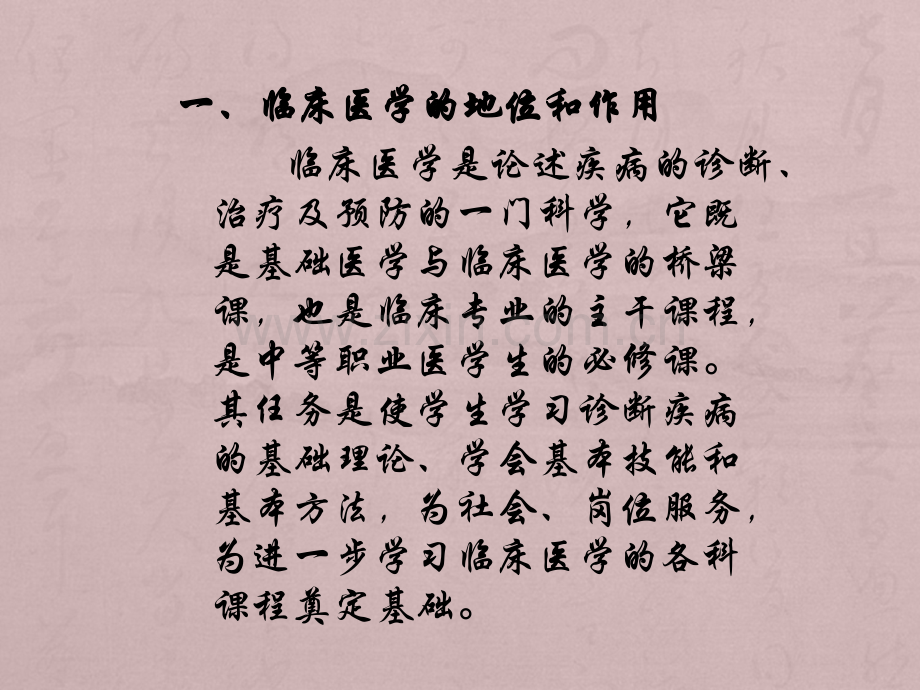 一、临床医学的地位和作用
临床医学是论述疾病的诊断、
治疗及预防的一门科学，它既
是基础医学与临床医学的桥梁
课，也是临床专业的主干课程，
是中等职业医学生的必修课。
其任务是使学生学习诊断疾病
的基础理论、学会基本技能和
基本方法，为社会、岗位服务，
为进一步学习临床医学的各科
课程奠定基础。
www.zixin.com.cn